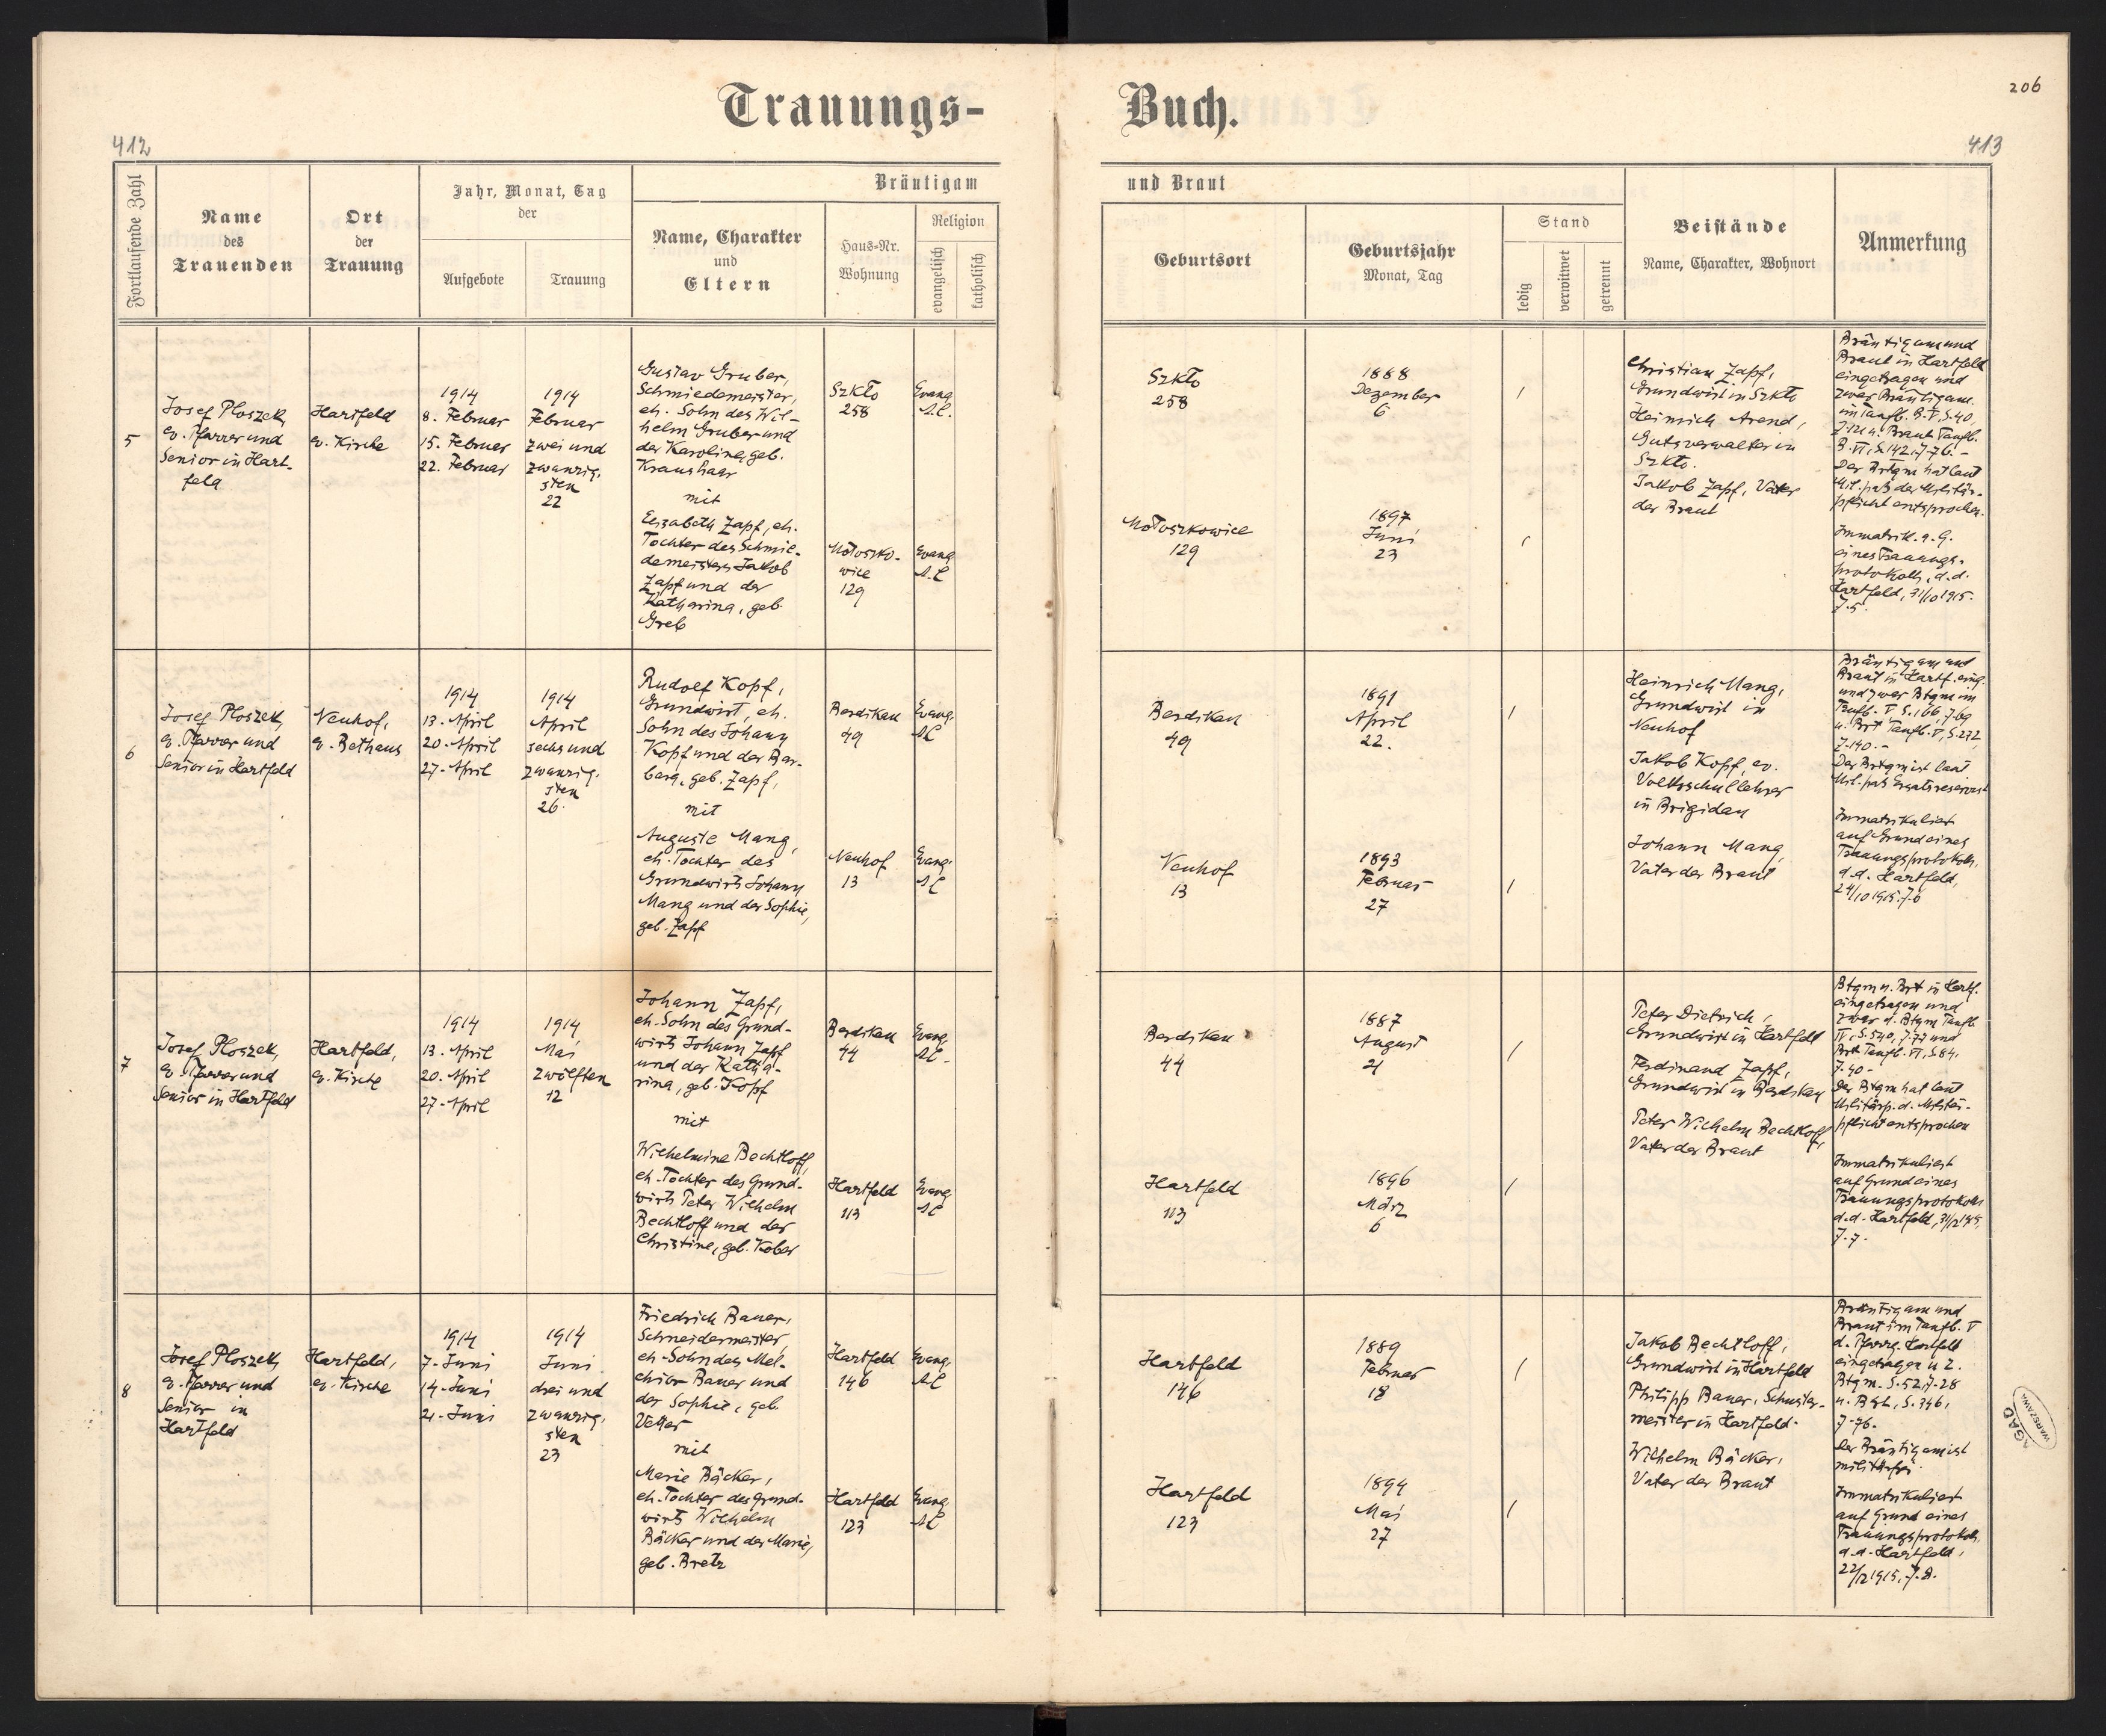 Trauungs-
Buch.
206
412
413
Fortlaufende Zahl
Name
des
Trauenden
Ort
der
Trauung
Jahr, Monat, Tag
der
Aufgebote
Trauung
Bräutigam
Name, Charakter
und
Eltern
Haus-Nr.
Wohnung
Religion
evangelisch
katholisch
und Braut
Geburtsort
Geburtsjahr
Monat, Tag
Stand
ledig
verwitwet
getrennt
Beistände
Name, Charakter, Wohnort
Anmerkung
5
Josef Ploszek,
ev. Pfarrer und
Senior in Hart-
feld
Hartfeld
ev. Kirche
1914
8. Februar
15. Februar
22. Februar
1914
Februar
zwei und
zwanzig-
sten
22
Gustav Gruber,
Schmiedemeister,
eh. Sohn des Wil-
helm Gruber und
der Karoline, geb.
Kraushaar
mit
Elisabeth Zapf, eh.
Tochter des Schmie-
demeisters Jakob
Zapf und der
Katharina, geb.
Greb
Szkło
258
Evang.
A.C.
Mołoszko-
wice
129
Evang.
A.C
Szkło
258
1888
Dezember
6
Mołoszkowice
129
1897
Juni
23
Christian Zapf,
Grundwirt in Szkło
Heinrich Arend,
Gutsverwalter in
Szkło.
Jakob Zapf, Vater
der Braut
Bräutigam und
Braut in Hartfeld
eingetragen und
zwar Bräutigam
im Taufb. B. V, S. 40,
u. Braut Taufb.
B. VI, S. 142, Z. 76. -
Der Brtgm hat laut
Mil. paß der Militär-
pflicht entsprochen.
Immatrik. a. G.
eines Trauungs-
protokolls, d. d.
Hartfeld, 31/10 1915.
Z. 5.
6
Josef Ploszek,
ev. Pfarrer und
Senior in Hartfeld
Neuhof,
ev. Bethaus
1914
13. April
20. April
27. April
1914
April
sechs und
zwanzig-
sten
26.
Rudolf Kopf,
Grundwirt, eh.
Sohn des Johann
Kopf und der Bar-
bara, geb. Zapf,
mit
Auguste Mang,
eh. Tochter des
Grundwirts Johann
Mang und der Sophie,
geb. Zapf
Berdikau
49
Evang.
AC
Neuhof
13
Evang.
AC
Berdikau
49
1891
April
22.
Neuhof
13
1893
Februar
27
Heinrich Mang,
Grundwirt in
Neuhof
Jakob Kopf, ev.
Volksschullehrer
in Brigidau
Johann Mang,
Vater der Braut
Bräutigam und
Braut in Hartf. eing.
und zwar Btgm im
Taufb. V S. 166, Z. 69
u. Brt Taufb. V, S. 272,
Z. 140. -
Der Brtgm ist laut
Mil. paß Ersatzreservist
Immatrikuliert
auf Grund eines
Trauungsprotokolls,
d. d. Hartfeld,
24/10 1915. Z. 6
7
Josef Ploszek,
ev. Pfarrer und
Senior in Hartfeld
Hartfeld,
ev. Kirche
1914
13. April
20. April
27. April
1914
Mai
zwölften
12
Johann Zapf,
eh. Sohn des Grund-
wirts Johann Zapf
und der Katha-
rina, geb. Kopf
mit
Wilhelmine Bechtloff,
eh. Tochter des Grund-
wirts Peter Wilhelm
Bechtloff und der
Christine, geb. Kober
Berdikau
44
Evang.
AC
Hartfeld
113
Evang.
AC
Berdikau
44
1887
August
21
Hartfeld
113
1896
März
6
Peter Dietrich,
Grundwirt in Hartfeld
Ferdinand Zapf,
Grundwirt in Berdikau
Peter Wilhelm Bechtloff,
Vater der Braut
Btgm u. Brt in Hartf.
eingetragen und
zwar d. Btgm Taufb.
IV, S. 540, Z. 77 und
Brt Taufb. VI, S. 84,
Z. 40 -
Der Btgm hat laut
Militärp. d. Militär-
pflicht entsprochen
Immatrikuliert
auf Grund eines
Trauungsprotokolls
d. d. Hartfeld,
Z. 7.
8
Josef Ploszek,
ev. Pfarrer und
Senior in
Hartfeld
Hartfeld,
ev. Kirche
1914
7. Juni
14. Juni
21. Juni
1914
Juni
drei und
zwanzig-
sten
23
Friedrich Bauer,
Schneidermeister,
eh. Sohn des Mel-
chior Bauer und
der Sophie, geb.
Vetter
mit
Marie Bäcker,
eh. Tochter des Grund-
wirts Wilhelm
Bäcker und der Marie,
geb. Bretz
Hartfeld
146
Evang.
AC
Hartfeld
123
Evang.
AC
Hartfeld
146
1889
Februar
18
Hartfeld
123
1894
Mai
27
Jakob Bechtloff,
Grundwirt in Hartfeld
Philipp Bauer, Schuster-
meister in Hartfeld.
Wilhelm Bäcker,
Vater der Braut
Bräutigam und
Braut im Taufb. V
d. Pfarrg. Hartfeld
eingetragen u. z.
Btgm. S. 52, Z. 28
u. Brt, S. 346,
Z. 76.
Der Bräutigam ist
militärfrei.
Immatrikuliert
auf Grund eines
Trauungsprotokolls,
d. d. Hartfeld,
22/12 1915, Z. 8.
AGAD
WARSZAWA